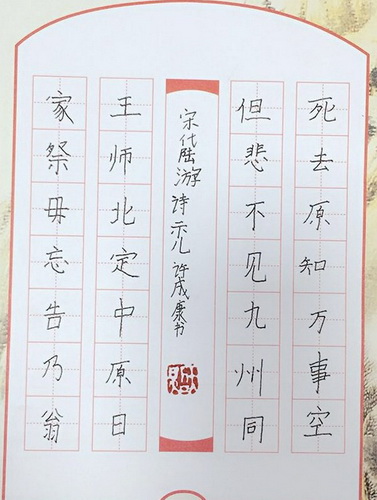 死去原知万事空
但悲不见九州同
宋代陆游诗示儿 许成康书
王师北定中原日
家祭毋忘告乃翁